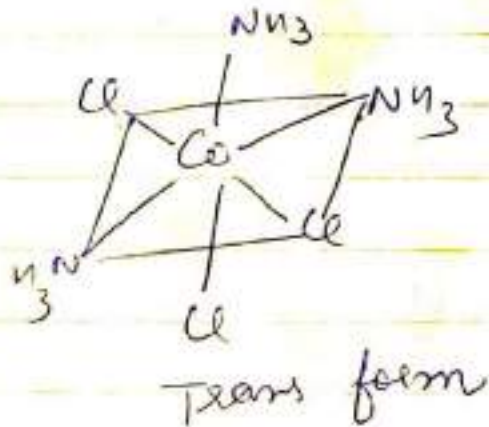 NH3
Cl
NH3
Co
Cl
H3N
Cl
Trans form